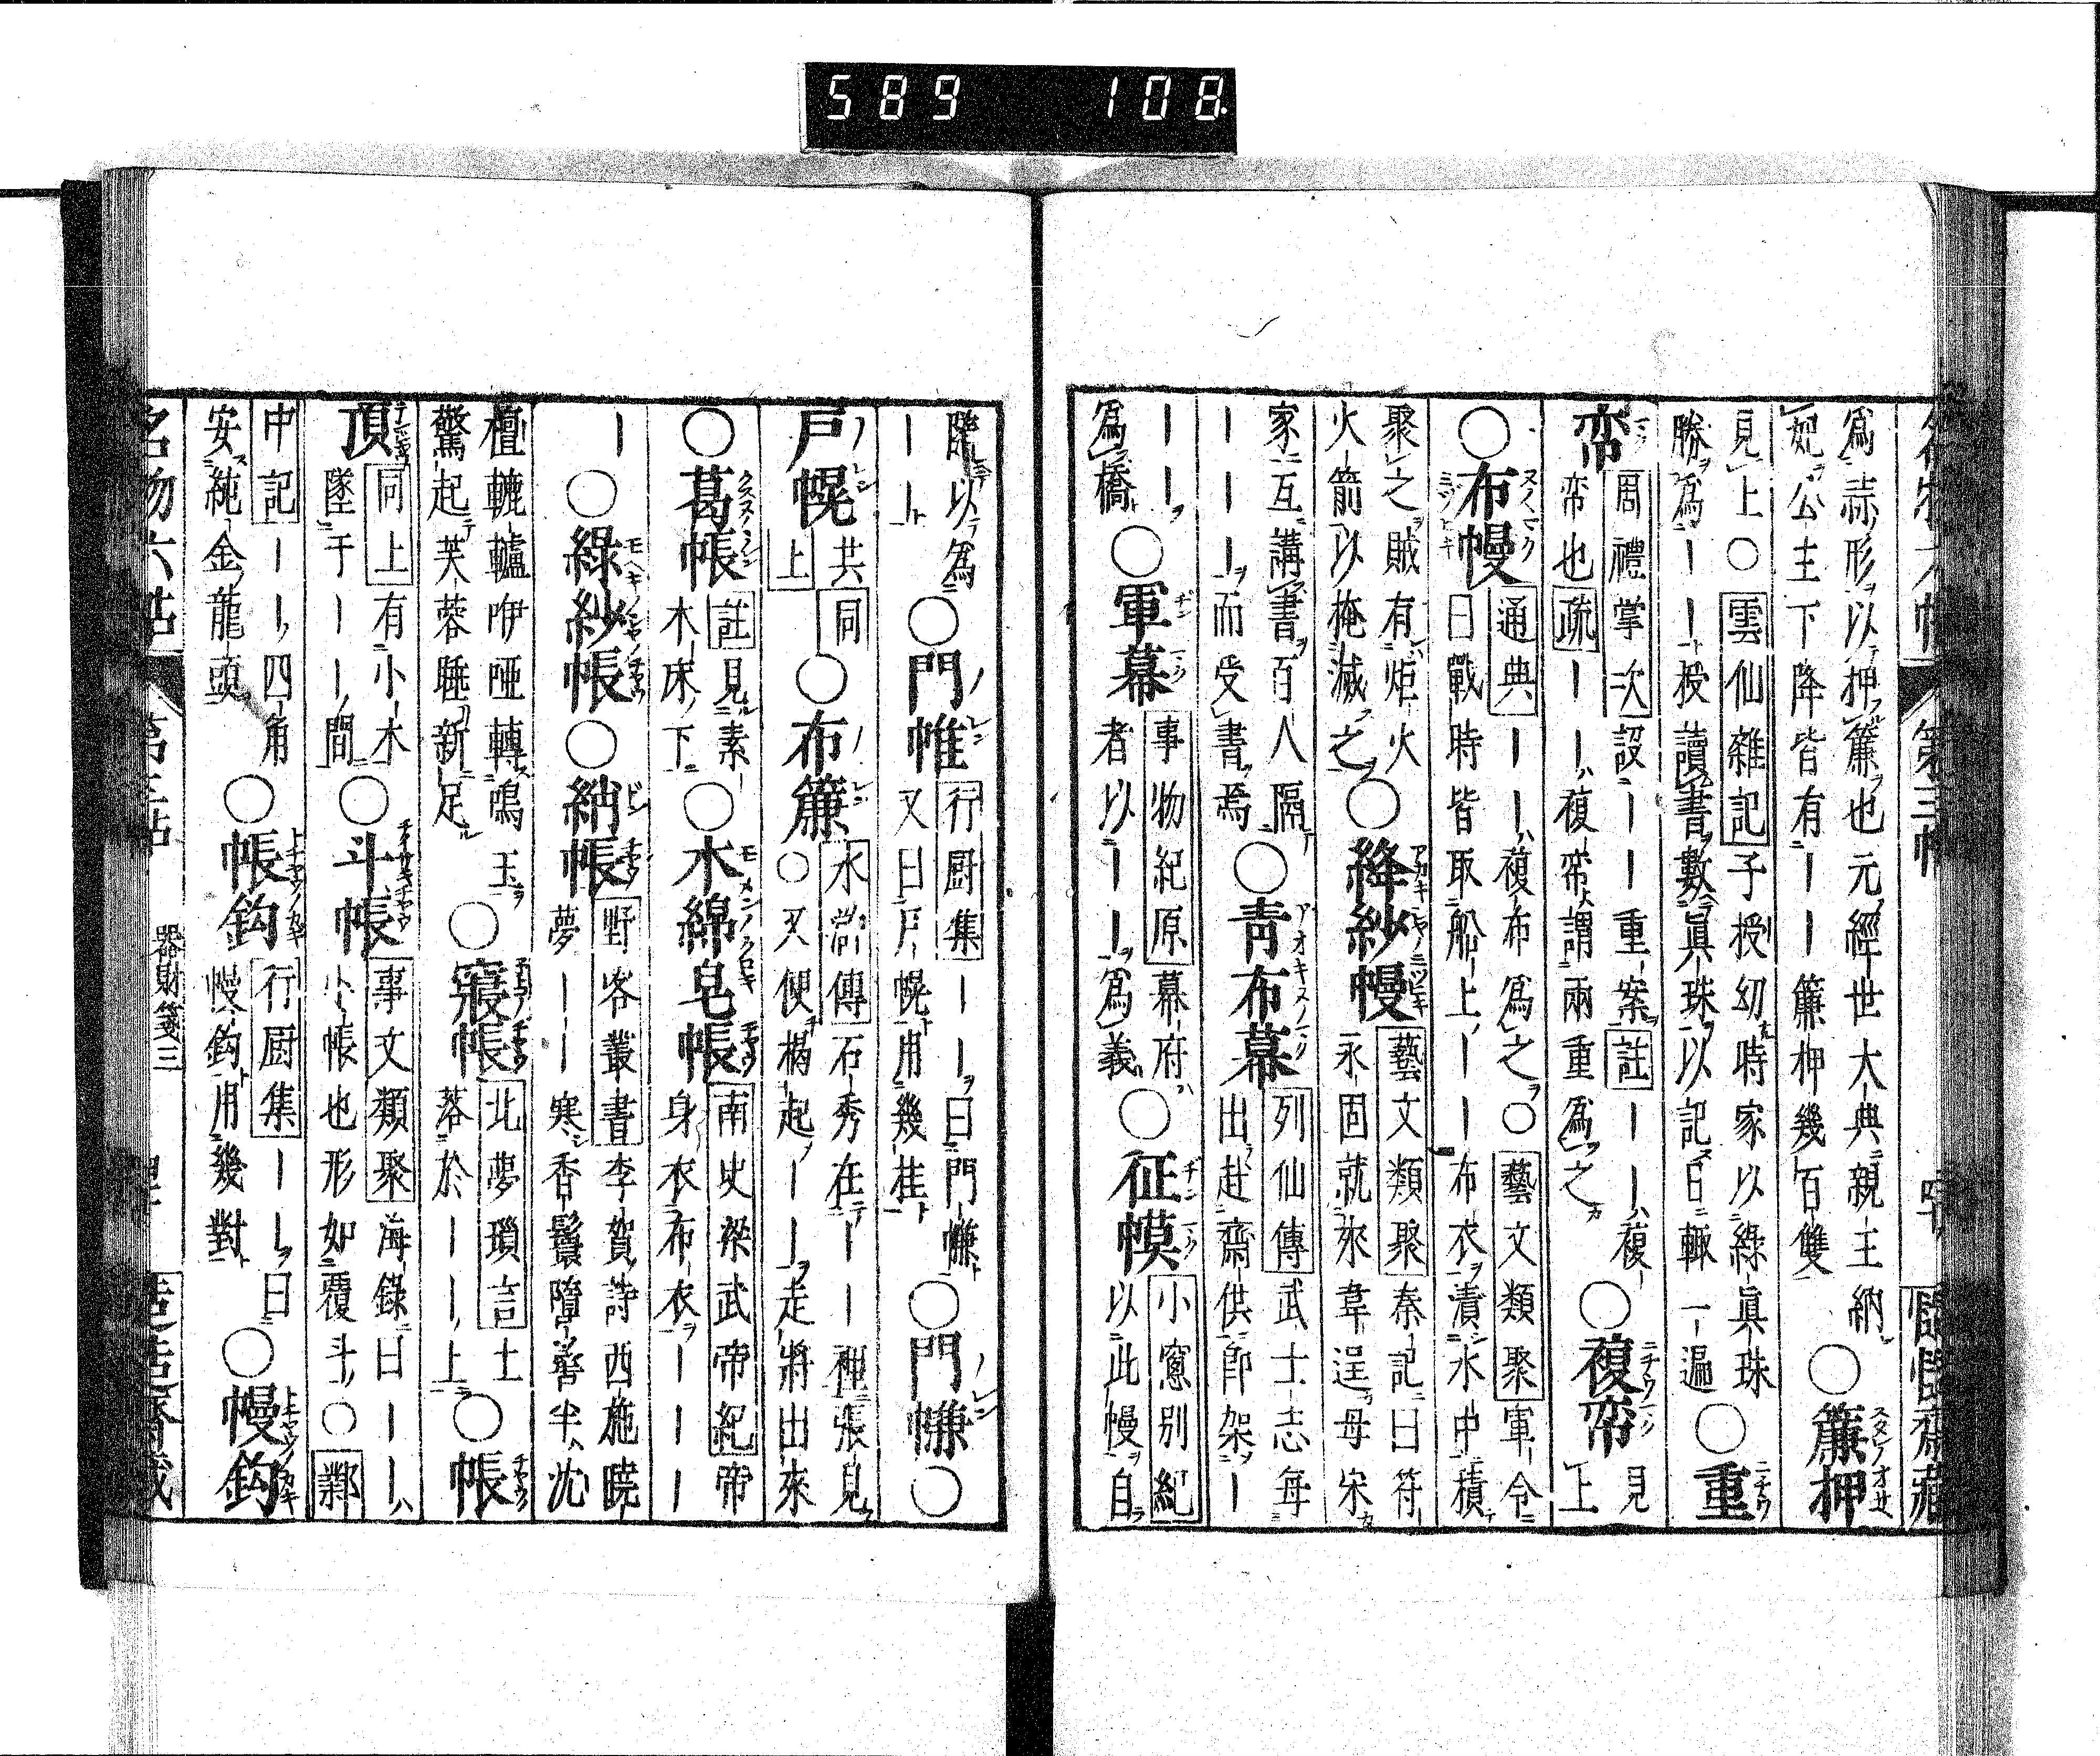 589 108
爲蒜形以押簾也元經世大典親王納
妃公主下降皆有｜｜簾押幾百雙
○簾押
見上○雲仙雜記子授幼時家以綠眞珠
勝爲｜｜授讀書數眞珠以記日輙一遍
○重
帟
周禮掌次設｜｜重案註｜｜複
帟也疏｜｜複帟謂兩重爲之
○複帟
見上
○布幔
通典｜｜複布爲之○藝文類聚軍令
曰戰時皆取船上｜｜布衣漬水中積
聚之賊有炬火
火箭以掩滅之
○絳紗幔
藝文類聚秦記曰符
永固就來韋逞母宋
家互講書百人隔
｜｜｜而受書焉
○青布幕
列仙傳武士志每
出赴齋供即架｜
｜｜
爲橋
○軍幕
事物紀原幕府
者以｜｜爲義
○征幙
小窓別紀
以此幔自
隨以爲
｜｜
○門帷
行厨集｜｜曰門㡘
又曰戸幌用幾桂
○門㡘
○
戸幌
共同
上
○布簾
水滸傳石秀在｜｜裡張見
○又便揭起｜｜走將出來
○葛帳
註見素
木床下
○木綿皂帳
南史梁武帝紀帝
身衣布衣｜｜｜
｜
○綠紗帳
○綃帳
野客叢書李賀詩西施曉
夢｜｜寒香鬟墮髻半沈
檀轆轤咿啞轉鳴玉
驚起芙蓉睡新足
○寢帳
北夢瑣言士
落於｜｜上
○帳
頂
同上有小木
墜于｜｜間
○斗帳
事文類聚海錄曰｜｜
小帳也形如覆斗○鄴
中記｜｜四角
安純金龍頭
○帳鈎
行厨集｜｜曰
幔鈎用幾對
○幔鈎
器財箋三